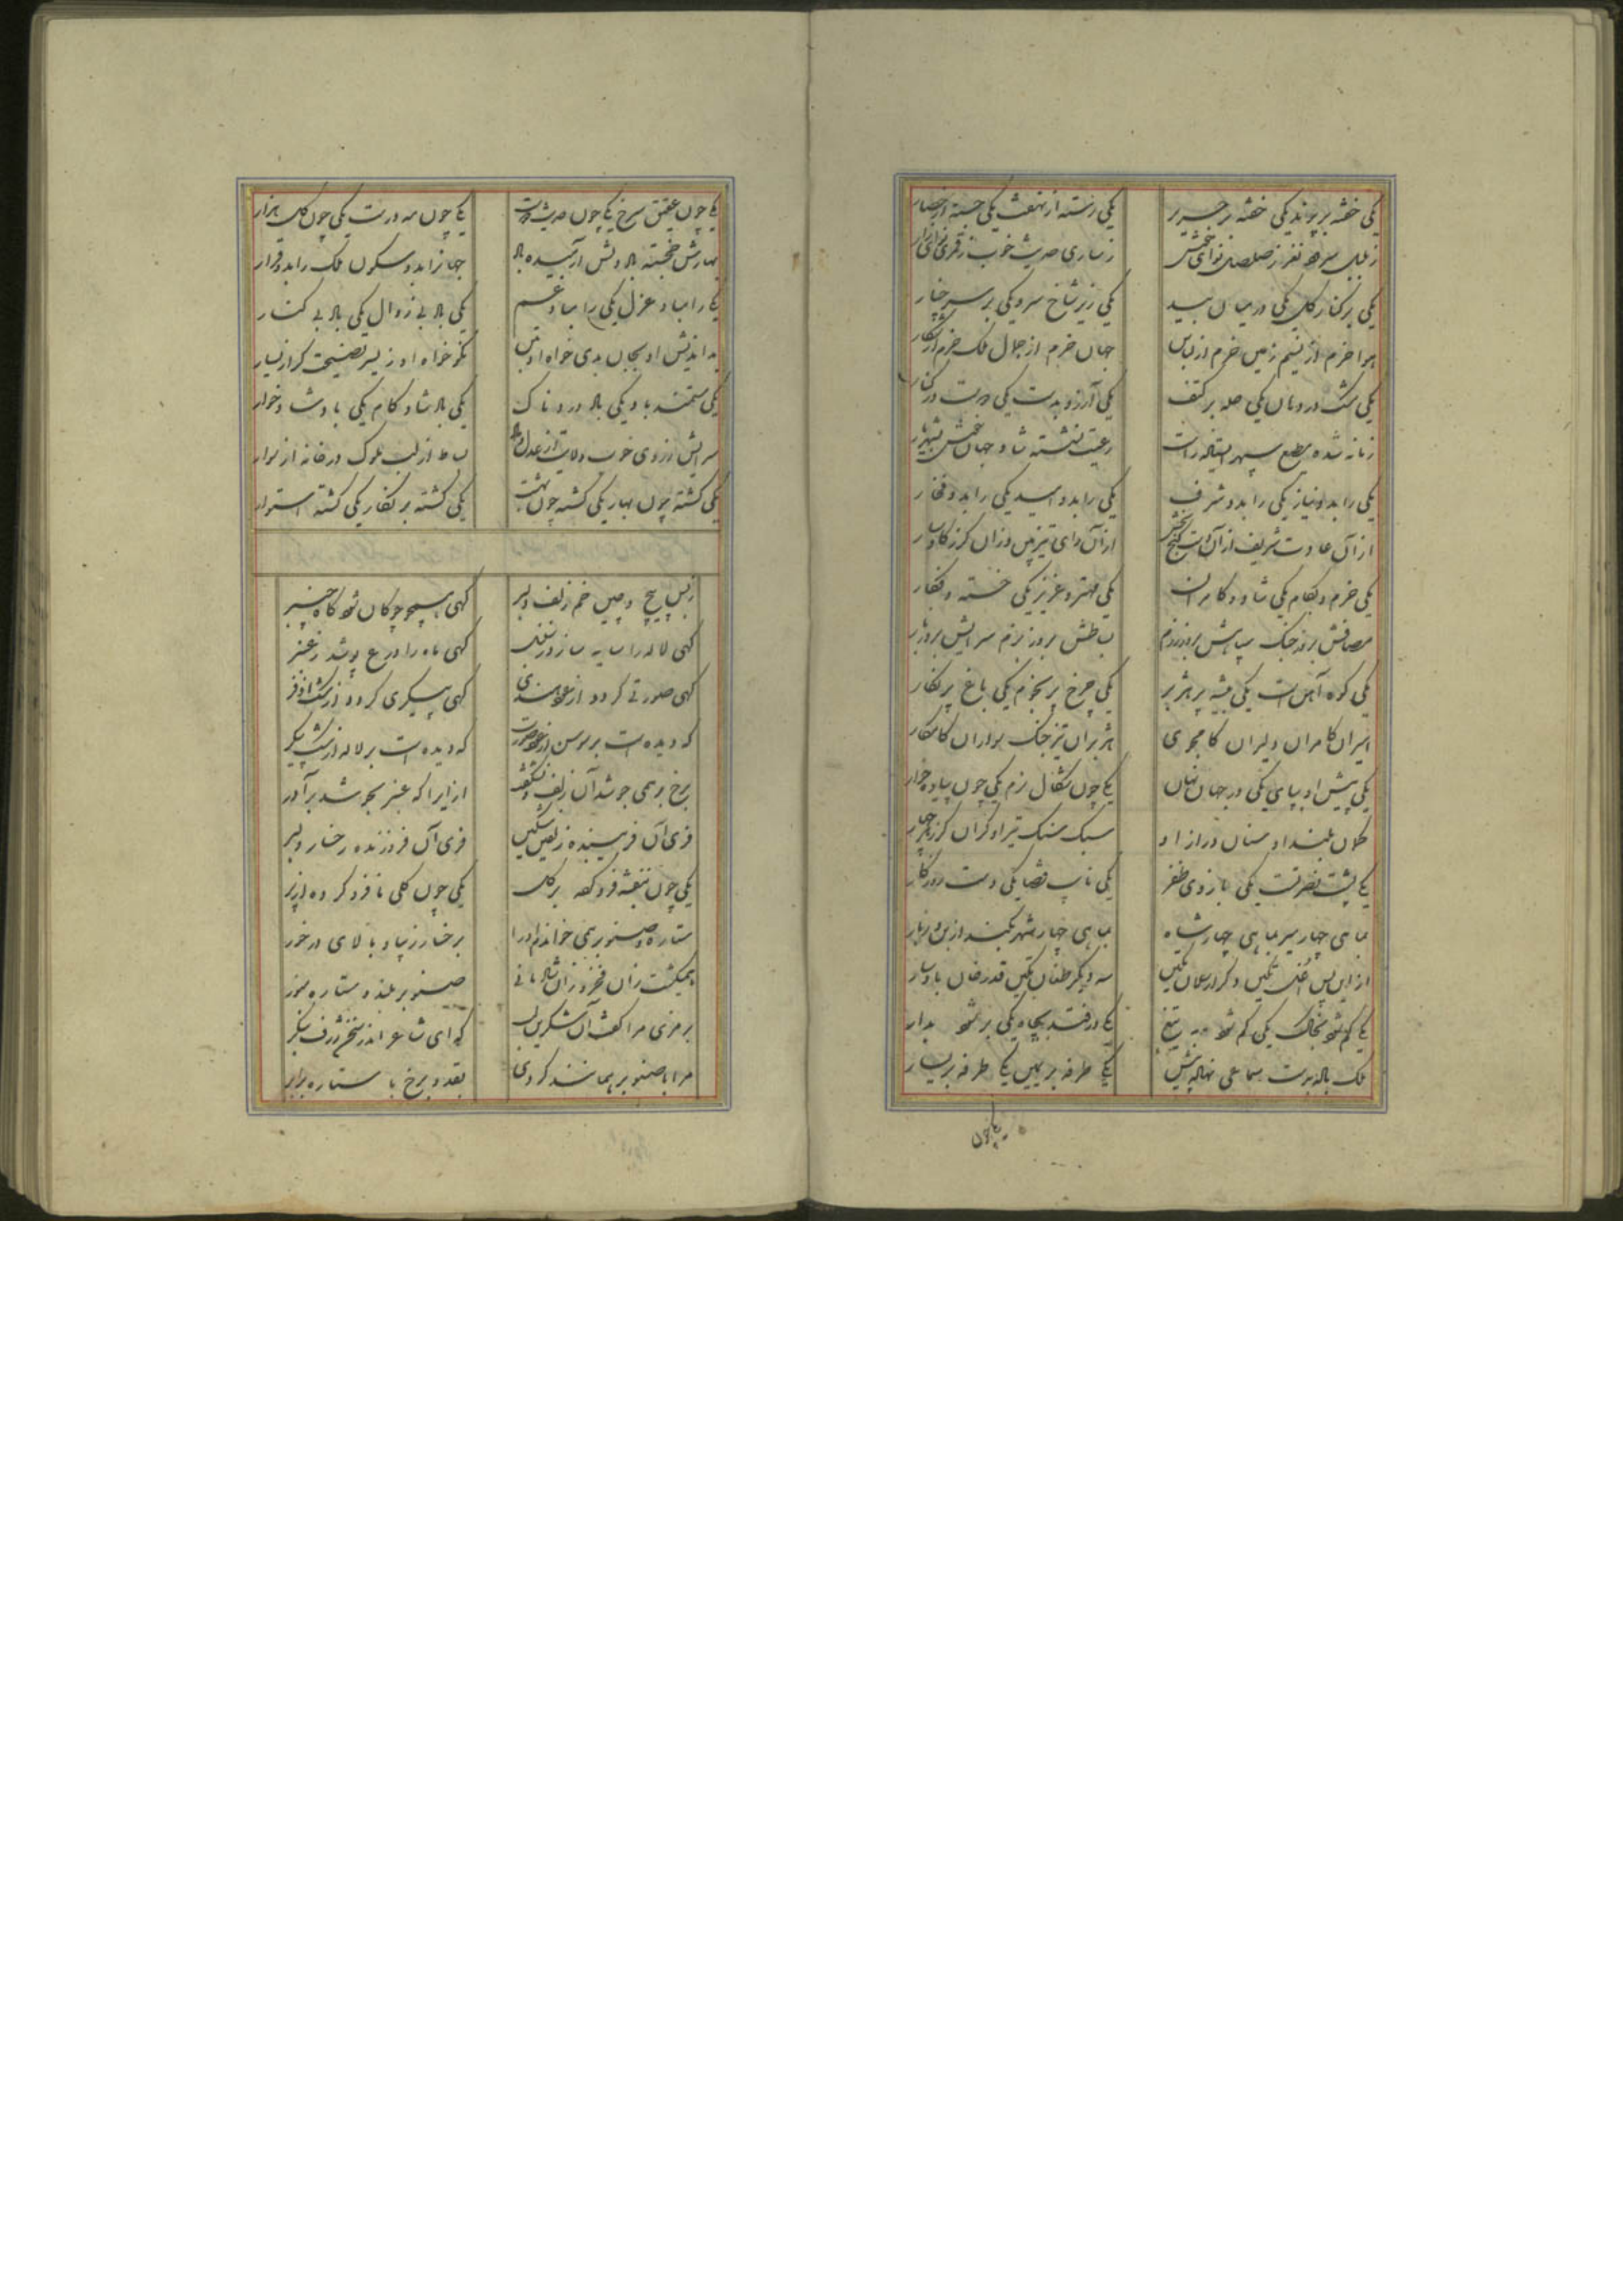 یکی خفته بر پرند یکی خفته بر حریر یکی رسته از نهفت یکی جسته از حصار
ز بلبل سرود نغز ز صلصل نوای خوش ز ساری حدیث خوب ز قمری نوای زار
یکی بر کنار گل یکی در میان بید یکی زیر شاخ سرو یکی بر سر چنار
هوا خرم از نسیم زمین خرم از لباس جهان خرم از جمال ملک خرم از شکار
یکی مشک در دهان یکی حله بر کتف یکی آرزو بدست یکی دوست در کنار
زمانه شده مطیع سپهر ایستاده راست رعیت نشسته شاد جهان خوش بشهریار
یکی را بدو نیاز یکی را بدو شرف یکی را بدو امید یکی را بدو فخار
از آن عادت شریف از آن دست گنج بخش از آن رای تیزبین وزان گرز گاوسار
یکی خرم و بکام یکی شاد و کامران یکی مهتر و عزیز یکی خسته و فکار
مصافش بروز جنگ سپاهش بروز رزم بساطش بروز بزم سرایش بروز بار
یکی کوه آهن است یکی بیشه پر هژبر یکی چرخ پر نجوم یکی باغ پر نگار
امیران کامران دلیران کامجوی هژبران تیز جنگ سواران کامکار
یکی پیش او بپای یکی در جهان نهان یکی چون شکال نرم یکی چون پیاده خوار
کمان بلند او سنان دراز او سبک سنگ تیر او گران گرز
یکی پشت نصرتست یکی بازوی ظفر یکی نایب قضا یکی دست روزگار
بماهی چهار میر بماهی چهار شاه بماهی چهار شهر بکند از بن و ز بار
ازین پس تکین و گر ارسلان تکین سه دیگر طغان تکین قدرخان بادسار
یکی گم شود بخاک یکی گم شود به تیغ یکی در فتد بچاه یکی بر شود بدار
ملک باده بدست سماعی نهاده پیش یکی طرفه بر یمین یکی طرفه بر یسار
یکی چون
یکی چون عقیق سرخ یکی چون حدیث دوست یکی چون مه درست یکی چون گل هزار
بهارش خجسته باد دلش آرمیده باد جهانرا بدو سکون ملک را بدو قرار
یکی را مباد عزل یکی را مباد غم یکی باد بی زوال یکی باد بی کنار
بداندیش او بجان بدی خواه او بتن نکو خواه او ز یسر نصیحت گر از یسار
یکی مستمند باد یکی باد دردناک یکی باد شاد کام یکی باد شادخوار
سرایش ز روی خوب ولایت ز عدل بساط از لب ملوک در خانه از سوار
یکی گشته چون بهار یکی گشته چون بهشت یکی گشته پر نگار یکی گشته استوار
ز بس پیچ و چین خم زلف دلبر گهی همچو چوگان شود گاه چنبر
گهی لاله را سایه سازد ز سنبل گهی ماه را درع پوشد ز عنبر
گهی صورتی گردد از عود هندی گهی پیکری گردد از مشک اذفر
که دیده است بر سوسن از عود صورت که دیده است بر لاله از مشک پیکر
برخ بر همی جوشد آن زلف و نشگفت ازیرا که عنبر بجوشد بر آذر
فری آن فریبنده زلفین مشکین فری آن فروزنده رخسار دلبر
یکی چون بنفشه فرو کرده بر گل یکی چون گلی نا فرو کرده از بر
ستاره و صنوبر همی خواندم او را برخسار زیبا و بالای در خور
همیگشت زان فخر و زان شادمانی صنوبر بلند و ستاره منور
برمزی مرا گفت آن شکرین لب که ای شاعر اندر سخن ژرف بنگر
مرا با صنوبر همانند کردی بقد و برخ با ستاره برابر